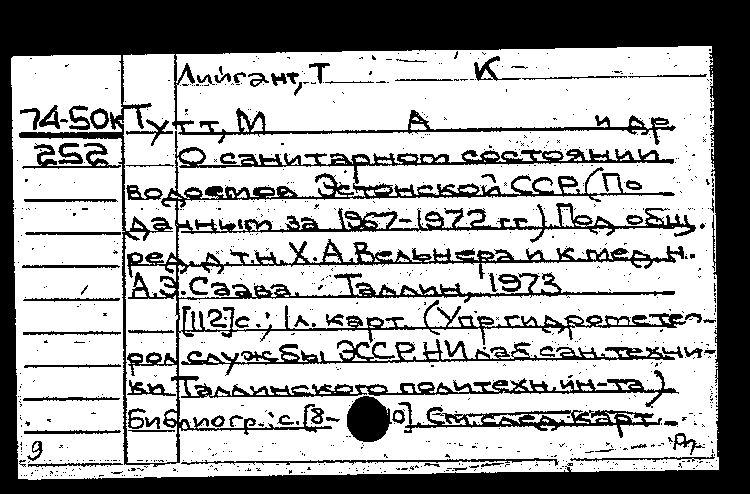 Лийгант, Т К
74-50к Тутт, М А и др
252 О санитарном состоянии
водоемов Эстонской ССР. (По
данным за 1967-1972 гг.). Под общ.
ред. д.т.н. Х.А. Вельнера и к.мед.н.
А.Э. Саава. Таллин, 1973
[112] с.; 1 л. карт. (Упр. гидрометео-
рол. службы ЭССР. НИ лаб. сан. техни-
ки Таллинского политехн. ин-та).
Библиогр.: с. [8- 0]. См. след. карт.
9